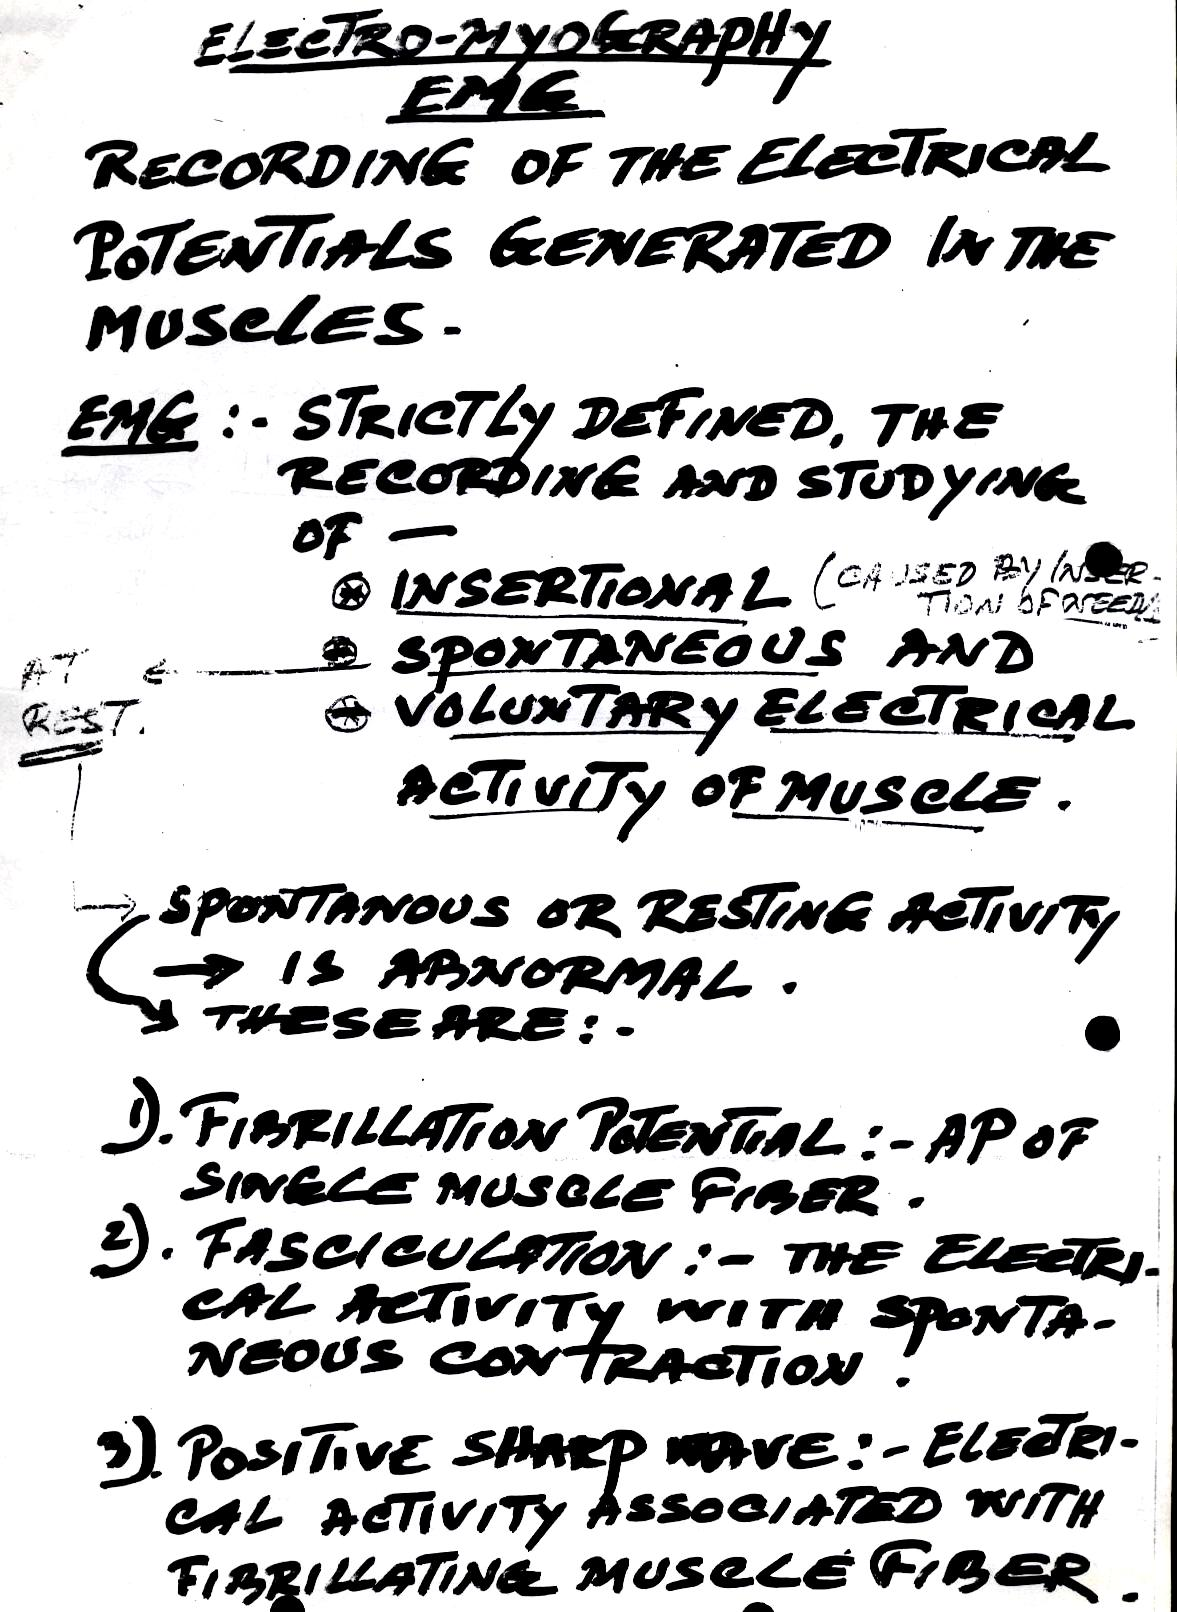 ELECTRO-MYOGRAPHY
EMG
RECORDING OF THE ELECTRICAL
POTENTIALS GENERATED IN THE
MUSCLES -
EMG :- STRICTLY DEFINED, THE
RECORDING AND STUDYING
OF —
INSERTIONAL (CAUSED BY INSER-
TION OF
SPONTANEOUS AND
AT ←
VOLUNTARY ELECTRICAL
REST.
ACTIVITY OF MUSCLE.
→ SPONTANOUS OR RESTING ACTIVITY
→ IS ABNORMAL.
THESE ARE :-
1). FIBRILLATION POTENTIAL :- AP OF
SINGLE MUSCLE FIBER.
2). FASCICULATION :- THE ELECTRI-
CAL ACTIVITY WITH SPONTA-
NEOUS CONTRACTION.
3). POSITIVE SHARP WAVE :- ELECTRI-
CAL ACTIVITY ASSOCIATED WITH
FIBRILLATING MUSCLE FIBER.